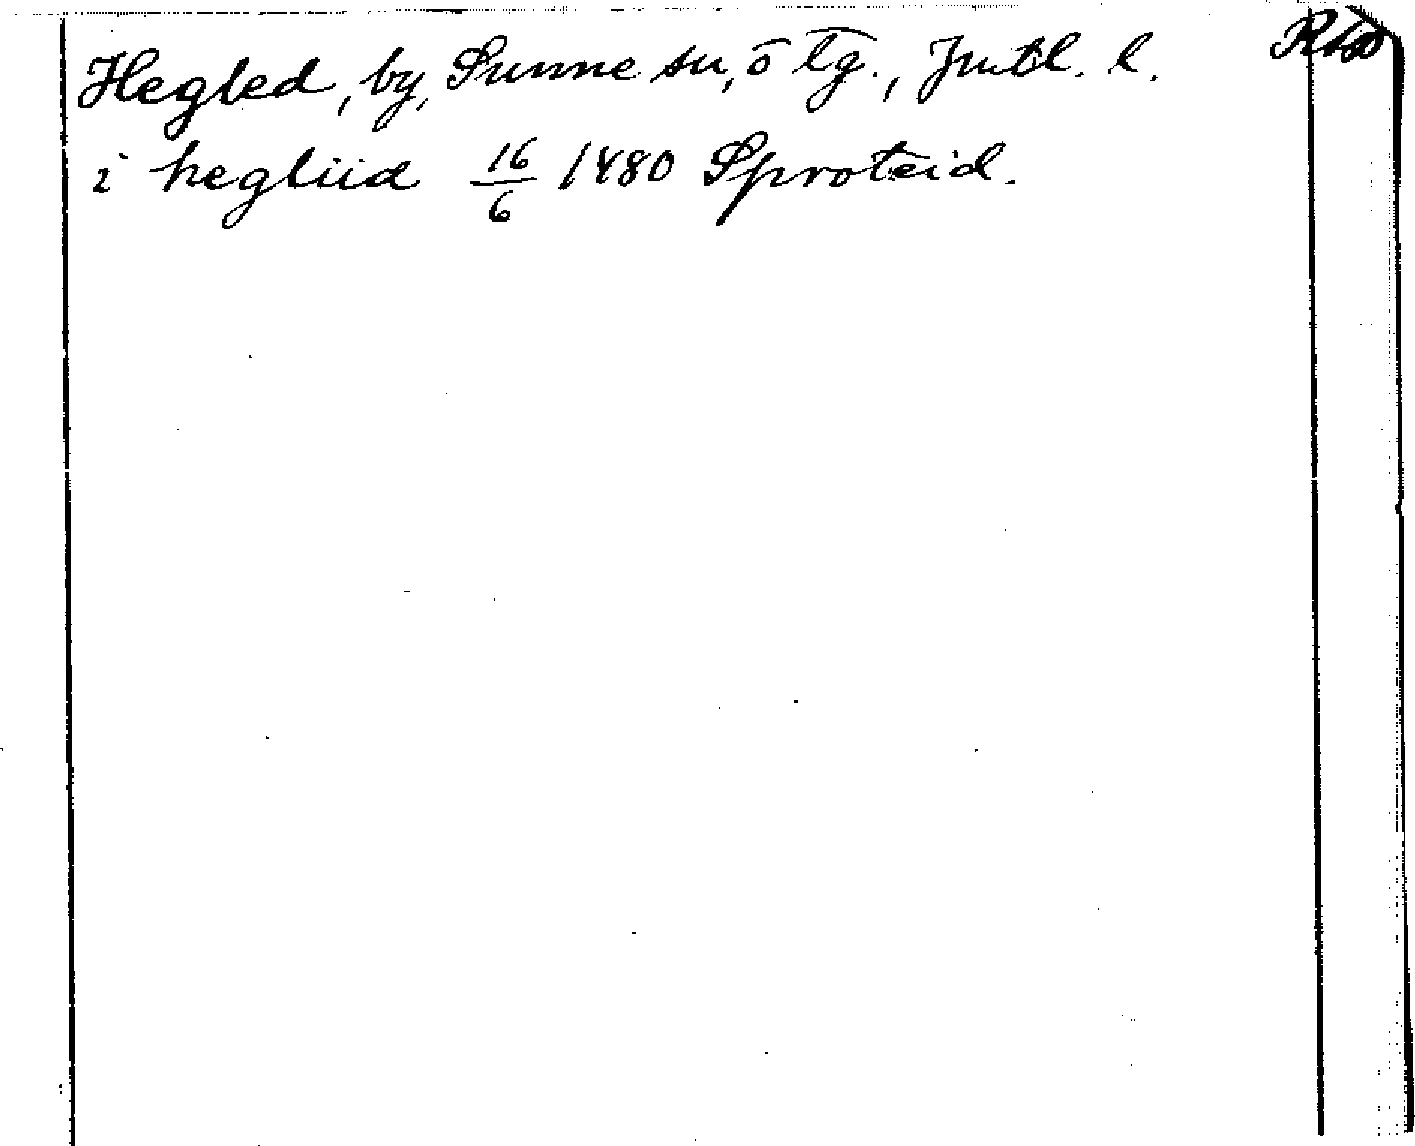 Hegled, by, Sunne sn, ö tg., Jmtl. l.
i hegliid 16/6 1480 Sproteid.